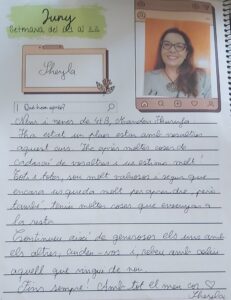 Juny
Setmana del 21 al 22
Sheyla
Què hem après?
Nens i nenes de 4tB,
Ha estat un plaer estar amb vosaltres
aquest curs. He après moltes coses de
cadascú de vosaltres i us estimo molt!
Tots i totes, sou molt valuosos i segur que
encara us queda molt per aprendre, però
també teniu moltes coses que ensenyar a
la resta.
Continueu així de generosos els uns amb
els altres, cuideu-vos i, rebeu amb
aquell que vingui de nou.
Fins sempre! Amb tot el meu cor ♡
Sheyla